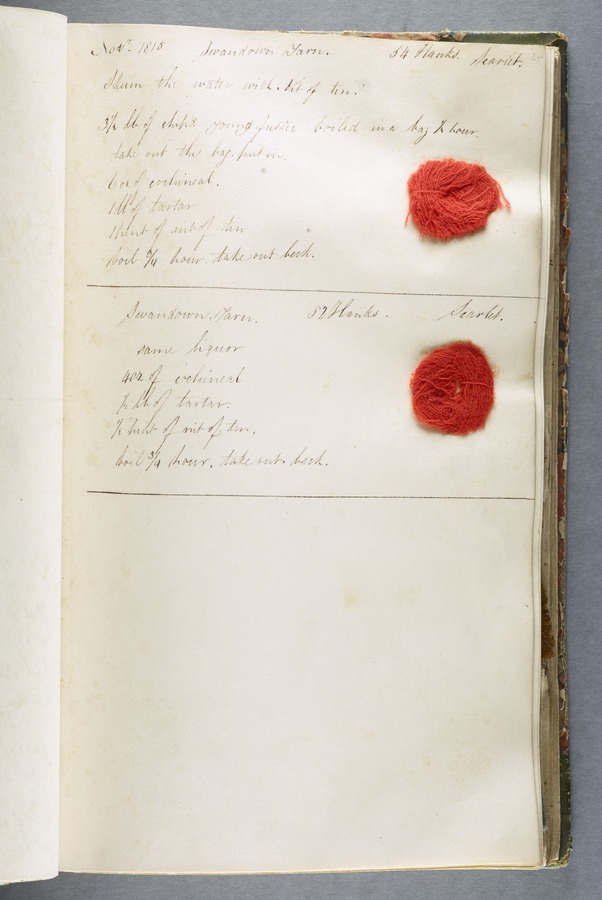 Novr. 1815 Swandown Yarn. 54 Hanks. Scarlet. 25
Skum the water with nit of tin.
3½ lb of chip'd young fustic boiled in a bag ½ hour.
take out the bag. put in.
6oz of cochineal.
1 lb of tartar
1 pint of nit of tin
boil ¾ hour. take out beck.
Swandown Yarn. 52 Hanks. Scarlet.
same liquor
4oz of cochineal
½ lb of tartar.
½ pint of nit of tin.
boil ¾ hour. take out beck.